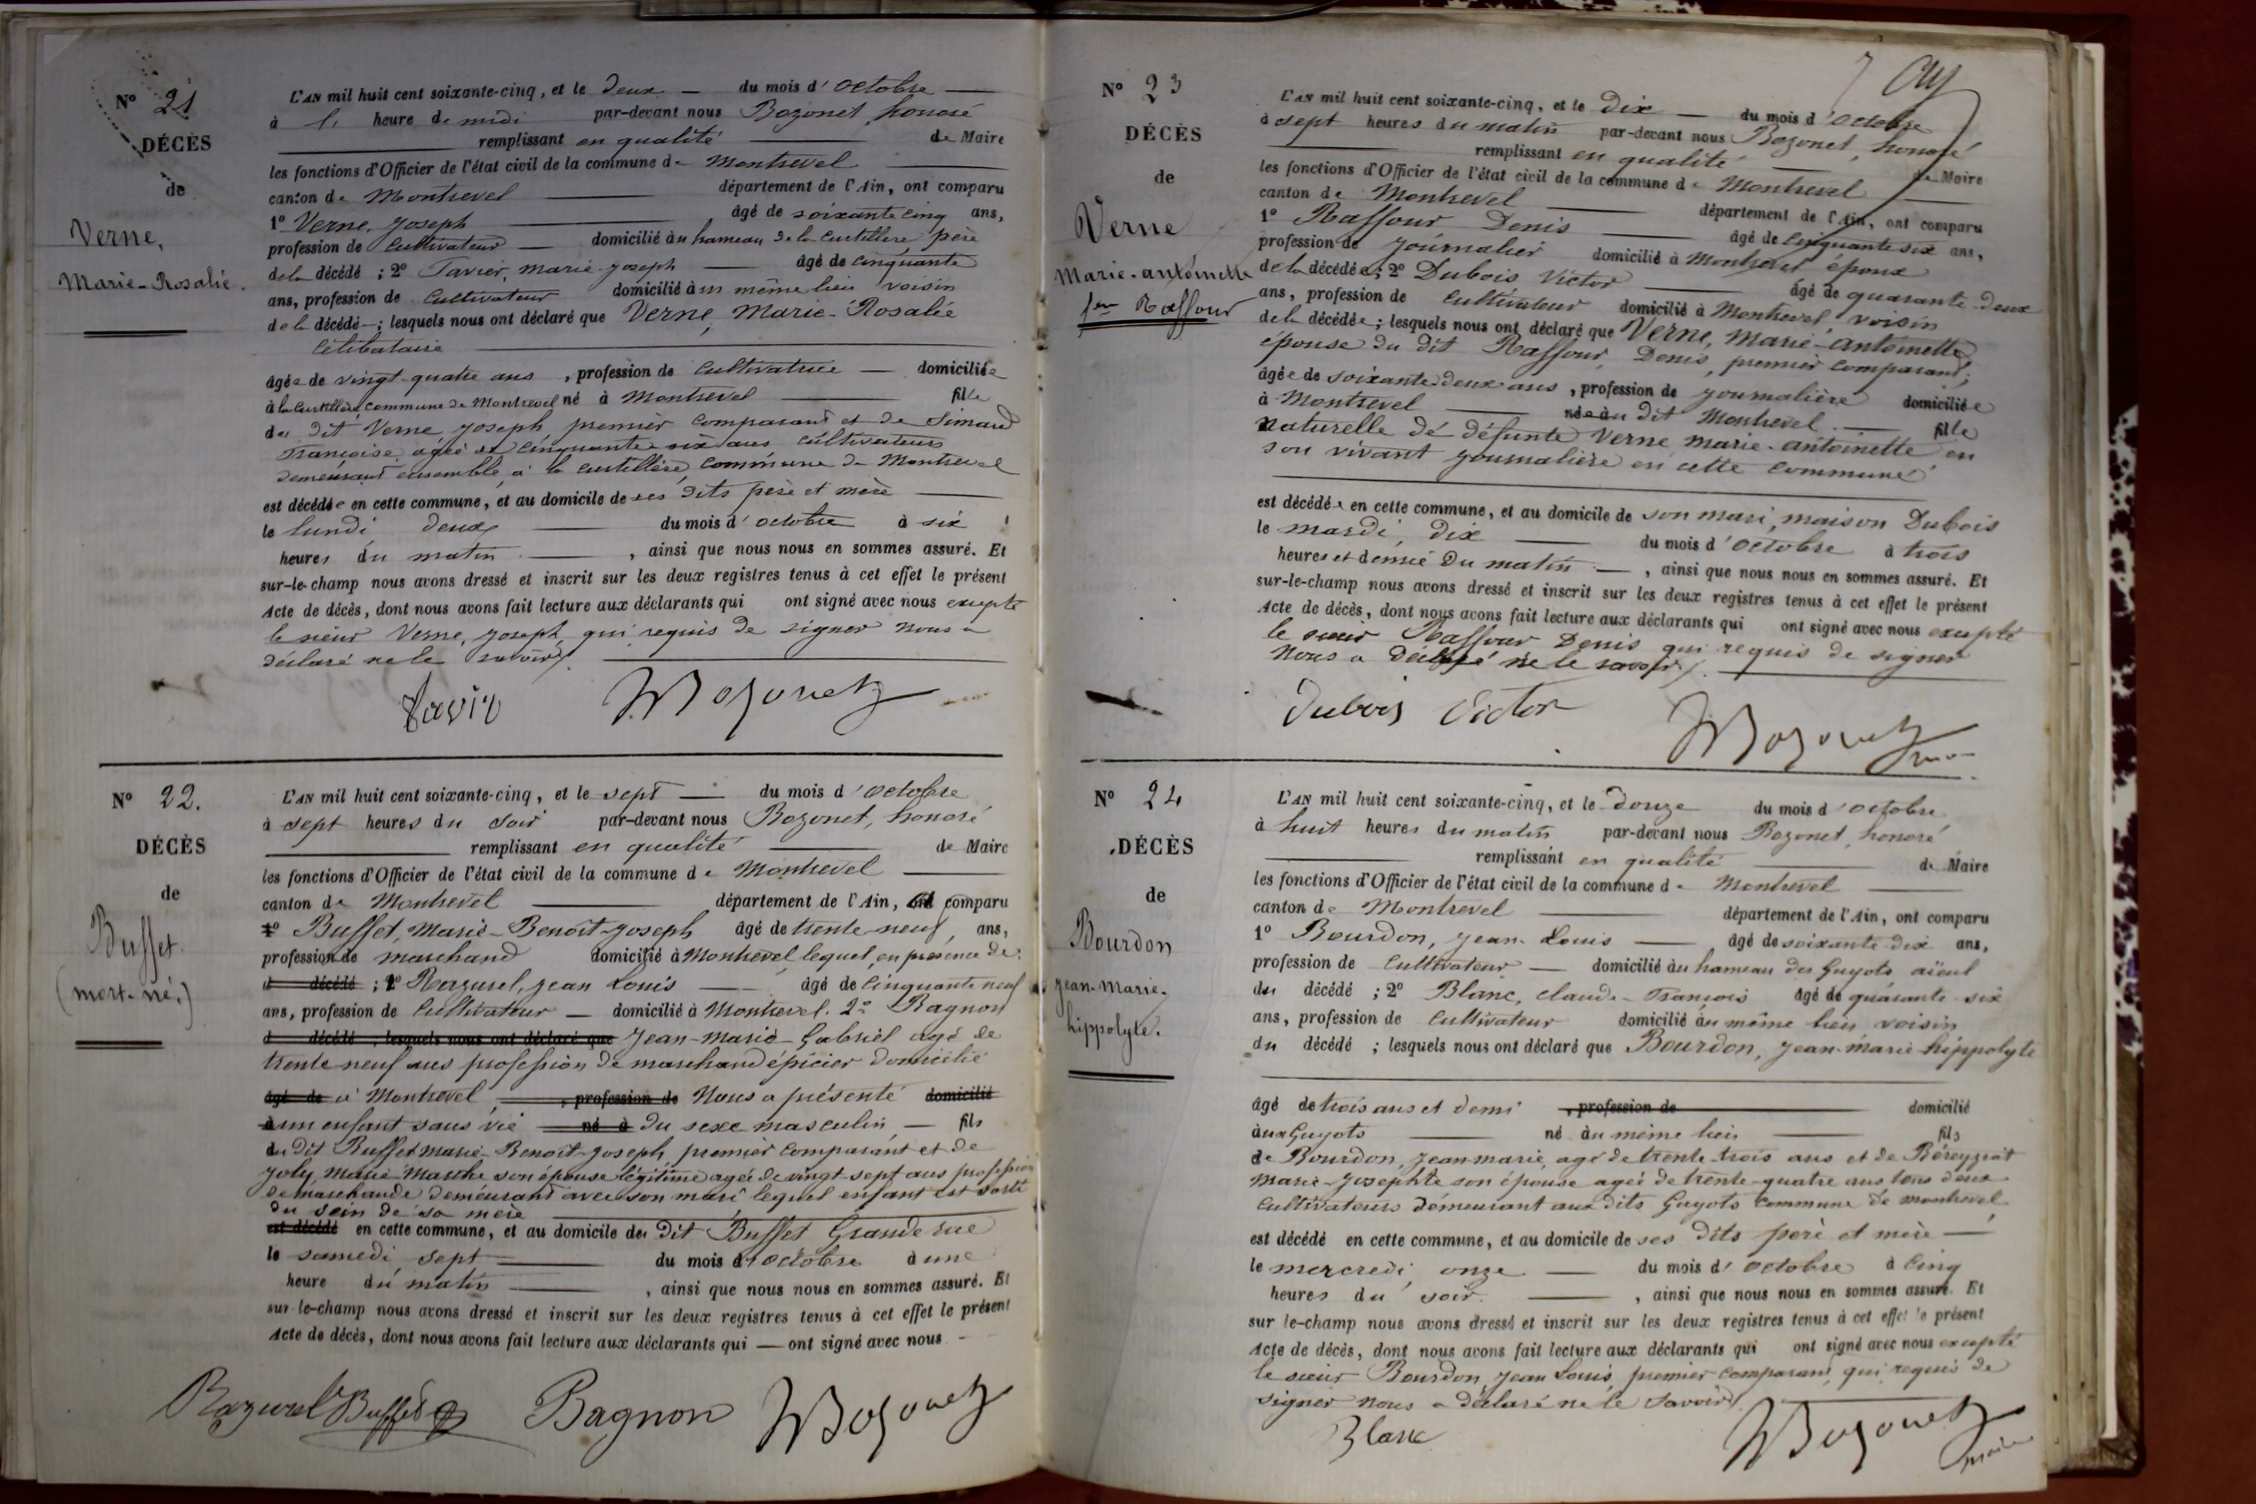 N° 21
DÉCÈS
de
Verne,
Marie-Rosalie.
L'AN mil huit cent soixante-cinq, et le deux — du mois d'octobre —
à heure de midi par-devant nous Bozonet, honoré
remplissant en qualité — de Maire
les fonctions d'Officier de l'état civil de la commune de Montrevel
canton de Montrevel — département de l'Ain, ont comparu
1° Verne, Joseph — âgé de soixante cinq ans,
profession de Cultivateur — domicilié au hameau de la Curtillère père
de la décédé ; 2° Tavier, marie-joseph — âgé de cinquante
ans, profession de Cultivateur domicilié au même lieu voisin
de la décédé ; lesquels nous ont déclaré que Verne, Marie-Rosalie
Célibataire
âgée de vingt-quatre ans, profession de Cultivatrice — domiciliée
à la Curtillère commune de Montrevel né à Montrevel — fille
du dit Verne Joseph, premier comparant et de Simand
Françoise, âgée de cinquante six ans cultivateurs
demeurant ensemble, à la curtillère, commune de Montrevel
est décédée en cette commune, et au domicile de ses dits père et mère
le lundi deux — du mois d'octobre à six
heures du matin — , ainsi que nous nous en sommes assuré. Et
sur-le-champ nous avons dressé et inscrit sur les deux registres tenus à cet effet le présent
Acte de décès, dont nous avons fait lecture aux déclarants qui ont signé avec nous excepté
le sieur Verne, Joseph, qui requis de signer nous a
déclaré ne le savoir.
Tavir Bozonet
N° 22.
DÉCÈS
de
Buffet.
(mort-né.)
L'AN mil huit cent soixante-cinq, et le sept — du mois d'octobre
à sept heures du soir par-devant nous Bozonet, honoré
remplissant en qualité — de Maire
les fonctions d'Officier de l'état civil de la commune de Montrevel
canton de Montrevel — département de l'Ain, comparu
1° Buffet, Marie-Benoît-Joseph âgé de trente-neuf, ans,
profession de marchand domicilié à Montrevel, lequel, en présence de:
d décédé ; 1° Razurel, Jean Louis — âgé de cinquante neuf
ans, profession de Cultivateur — domicilié à Montrevel. 2° Bagnon
d décédé ; lesquels nous ont déclaré que Jean-Marie-Gabriel agé de
trente neuf ans profession de marchand épicier domicilié
âgé de à Montrevel, , profession de Nous a présenté domicilié
à un enfant sans vie né à du sexe masculin — fils
du dit Buffet marie-Benoît-Joseph, premier comparant et de
Joly, Marie Marthe son épouse légitime agée de vingt-sept ans profession
de marchande demeurant avec son mari lequel enfant est sorti
du sein de sa mère
est décédé en cette commune, et au domicile du dit Buffet Grande rue
le samedi sept — du mois d'octobre à une
heure du matin — , ainsi que nous nous en sommes assuré. Et
sur-le-champ nous avons dressé et inscrit sur les deux registres tenus à cet effet le présent
Acte de décès, dont nous avons fait lecture aux déclarants qui — ont signé avec nous
Razurel Buffet Bagnon Bozonet
N° 23
DÉCÈS
de
Verne
Marie-antoinette
fem Raffour
L'AN mil huit cent soixante-cinq, et le dix — du mois d'octobre
à sept heures du matin par-devant nous Bozonet, honoré
remplissant en qualité — de Maire
les fonctions d'Officier de l'état civil de la commune de Montrevel
canton de Montrevel — département de l'Ain, ont comparu
1° Raffour Denis — âgé de cinquante six ans,
profession de Journalier domicilié à Montrevel époux
de la décédée ; 2° Dubois Victor — âgé de quarante-deux
ans, profession de Cultivateur domicilié à Montrevel, voisin
de la décédée ; lesquels nous ont déclaré que Verne, Marie-Antoinette
épouse du dit Raffour, Denis, premier comparant,
âgée de soixante deux ans, profession de journalière domiciliée
à Montrevel — née au dit Montrevel — fille
naturelle de défunte Verne, Marie-Antoinette en
son vivant journalière en cette commune
est décédée en cette commune, et au domicile de son mari, maison Dubois
le mardi, dix — du mois d'octobre à trois
heures et demie du matin — , ainsi que nous nous en sommes assuré. Et
sur-le-champ nous avons dressé et inscrit sur les deux registres tenus à cet effet le présent
Acte de décès, dont nous avons fait lecture aux déclarants qui ont signé avec nous excepté
le sieur Raffour Denis qui requis de signer
nous a déclaré ne le savoir.
Dubois Victor Bozonet
N° 24
DÉCÈS
de
Bourdon
Jean-Marie-
hippolyte.
L'AN mil huit cent soixante-cinq, et le douze du mois d'octobre
à huit heures du matin par-devant nous Bozonet, honoré
remplissant en qualité — de Maire
les fonctions d'Officier de l'état civil de la commune de Montrevel
canton de Montrevel — département de l'Ain, ont comparu
1° Bourdon, Jean-Louis — âgé de soixante dix ans,
profession de Cultivateur — domicilié au hameau des Guyots aïeul
du décédé ; 2° Blanc, Claude-François âgé de quarante-six
ans, profession de Cultivateur domicilié au même lieu voisin
du décédé ; lesquels nous ont déclaré que Bourdon, Jean-Marie hippolyte
âgé de trois ans et demi , profession de domicilié
aux Guyots — né au même lieu — fils
de Bourdon, Jean-marie, agé de trente-trois ans et de Béreyziat
Marie-Josephte son épouse agée de trente-quatre ans tous deux
Cultivateurs demeurant aux dits Guyots commune de Montrevel
est décédé en cette commune, et au domicile de ses dits père et mère
le mercredi, onze — du mois d'octobre à cinq
heures du soir. — , ainsi que nous nous en sommes assuré. Et
sur le-champ nous avons dressé et inscrit sur les deux registres tenus à cet effet le présent
Acte de décès, dont nous avons fait lecture aux déclarants qui ont signé avec nous excepté
le sieur Bourdon Jean Louis, premier comparant, qui requis de
signer nous a déclaré ne le savoir.
Blanc Bozonet
maire